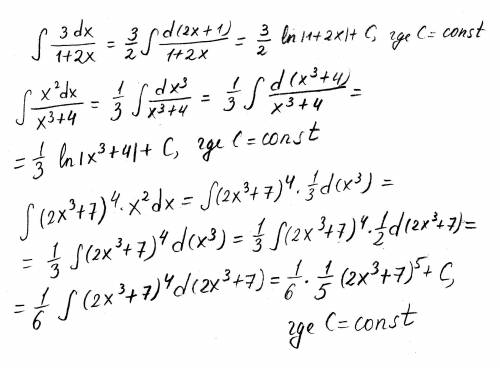 ∫ 3dx/(1+2x) = 3/2 ∫ d(2x+1)/(1+2x) = 3/2 ln|1+2x| + C, где C = const
∫ x²dx/(x³+4) = 1/3 ∫ dx³/(x³+4) = 1/3 ∫ d(x³+4)/(x³+4) =
= 1/3 ln|x³+4| + C, где C = const
∫(2x³+7)⁴ · x²dx = ∫(2x³+7)⁴ · 1/3 d(x³) =
= 1/3 ∫(2x³+7)⁴ d(x³) = 1/3 ∫(2x³+7)⁴ · 1/2 d(2x³+7) =
= 1/6 ∫(2x³+7)⁴ d(2x³+7) = 1/6 · 1/5 (2x³+7)⁵ + C,
где C = const